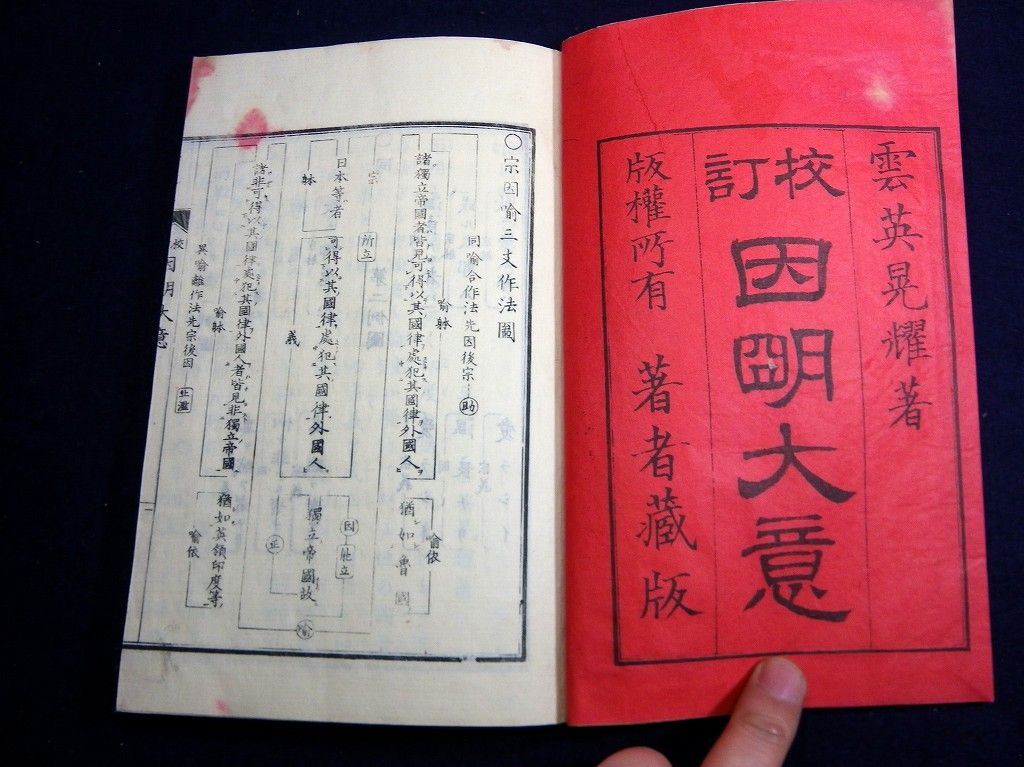 雲英晃耀著
校訂
因明大意
版權所有 著者藏版
〇宗因喻三支作法圖
同喻合作法先因後宗 助
喻躰
諸獨立帝國者皆見可得以其國律處犯其國律外國人
猶如魯國
喻依
宗
所立
日本等者
可得以其國律處犯其國律外國人
躰
義
因
能立
獨立帝國故
正
喻
諸非可得以其國律處犯其國律外國人者皆見非獨立帝國
喻躰
猶如英領印度等
喻依
異喻離作法先宗後因 止濫
校
因明大意